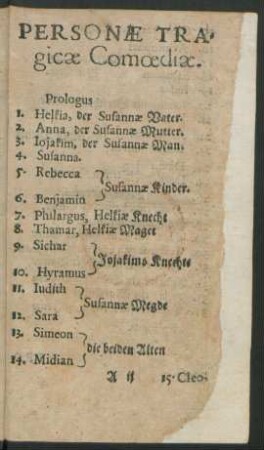 PERSONÆ TRA-
gicæ Comœdiæ.
Prologus
1. Helkia, der Susannæ Vater.
2. Anna, der Susannæ Mutter.
3. Iojakim, der Susannæ Man.
4. Susanna.
5. Rebecca
Susannæ Kinder.
6. Benjamin
7. Philargus, Helkiæ Knecht
8. Thamar, Helkiæ Maget
9. Sichar
Jojakims Knechte
10. Hyramus
11. Iudith
Susannæ Megde
12. Sara
13. Simeon
die beiden Alten
14. Midian
A ij 15. Cleo-